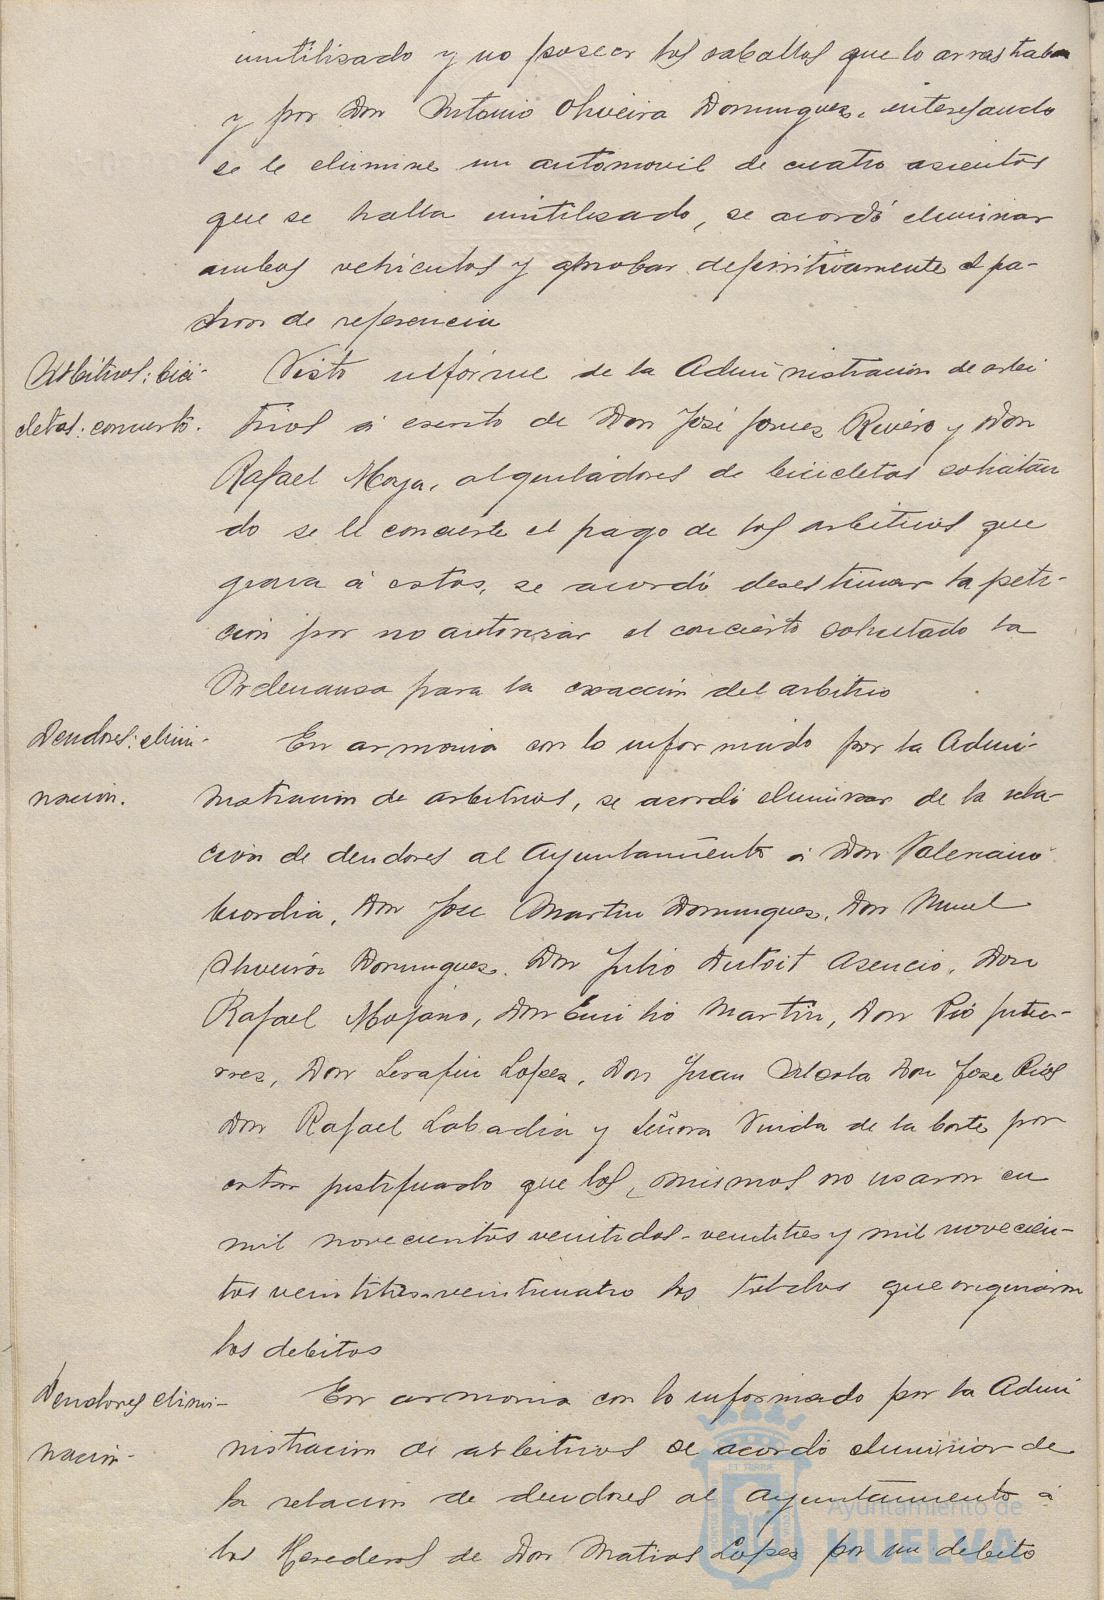 inutilisado y no poseer los caballos que lo arrastraban
y por Don Antonio Oliveira Dominguez, interesando
se le elimine un automovil de cuatro asientos
que se halla inutilisado, se acordó eliminar
ambos vehiculos y aprobar definitivamente el pa-
dron de referencia
Arbitrios: bici-
cletas: concierto.
Visto informe de la Administración de arbi
trios á escrito de Don José Gomez Rivero y Don
Rafael Moya, alquiladores de bicicletas solicitan
do se le concierte el pago de los arbitrios que
grava á estos, se acordó desestimar la peti-
ción por no autorizar el concierto solicitado la
Ordenansa para la exacción del arbitrio
Deudores: elimi-
nación.
En armonia con lo informado por la Admi-
nistración de arbitrios, se acordó eliminar de la rela-
ción de deudores al Ayuntamiento á Don Valeriano
Don Jose Martin Dominguez, Don
Oliveira Dominguez, Don Julio Dutoit Asencio, Don
Rafael Mojano, Don Emilio Martin, Don Pió Gutie-
rrez, Don Serafin Lopez, Don Juan Don Jose Rios
Don Rafael Labadia y Señora Viuda de la Corte por
estar justificado que los mismos no usaron en
mil novecientos veintidos-veintitres y mil novecien-
tos veintitres-veinticuatro los toldos que originaron
los debitos
Deudores elimi-
nación-
En armonia con lo informado por la Admi
nistracion de arbitrios se acordó eliminar de
la relacion de deudores al Ayuntamiento á
los Herederos de Don Matias Lopez por un debito
Ayuntamiento de
HUELVA